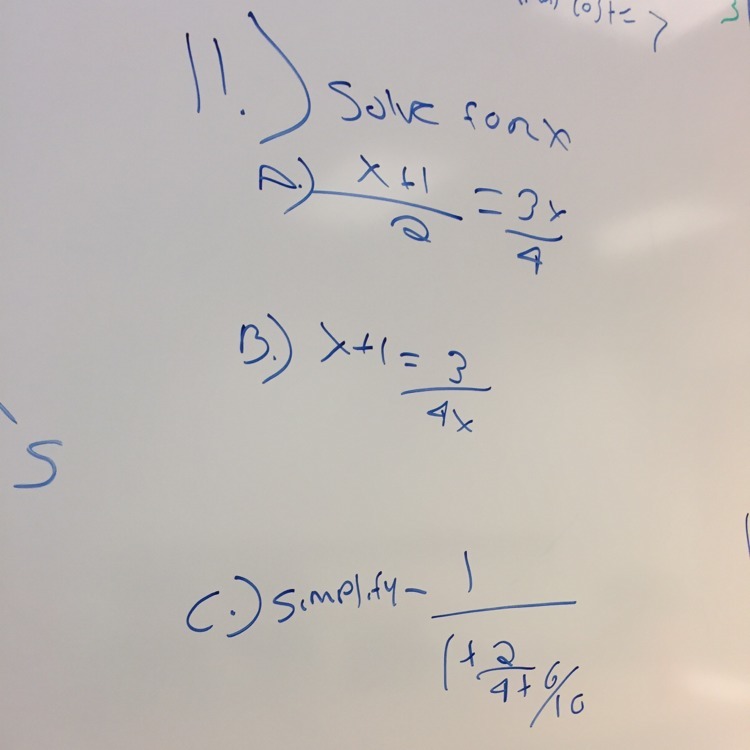 11.) Solve for x
A.) x+1/2 = 3x/4
B.) x+1 = 3/4x
C.) Simplify- 1/1+2/4+6/10
S